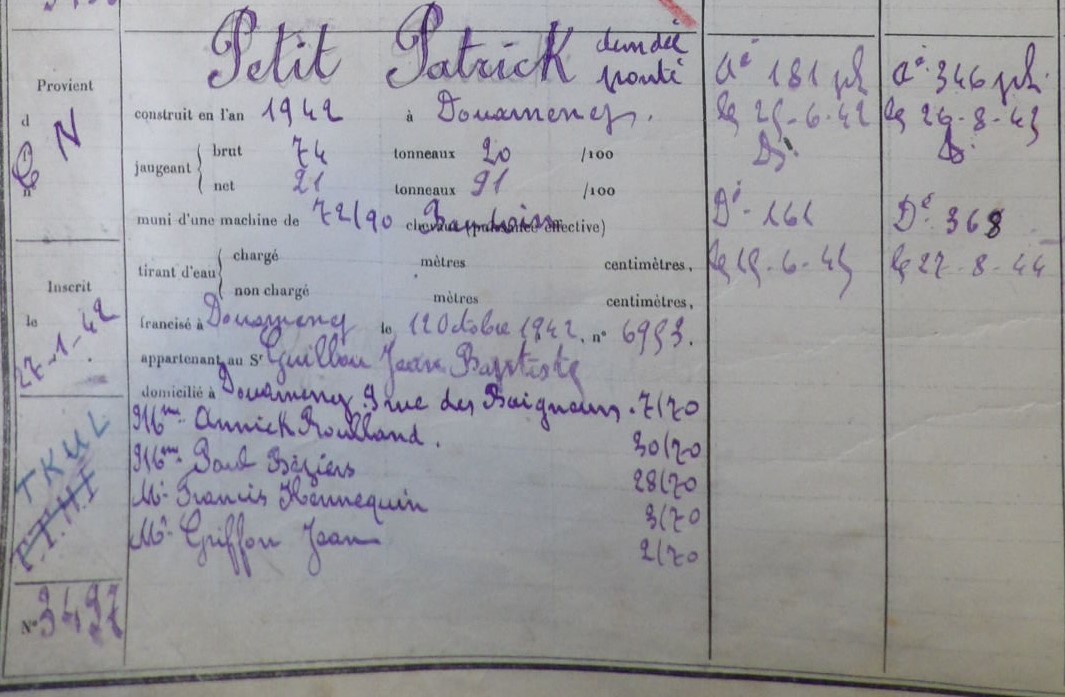 Provient
d
C N
n
Inscrit
le
27-1-42
TKUL
N° 3497
Petit Patrick dundée
ponté
construit en l'an 1942 à Douarnenez.
jaugeant { brut 74 tonneaux 20 /100
net 21 tonneaux 91 /100
muni d'une machine de 72/90 Baudoin chevaux (puissance effective)
tirant d'eau { chargé mètres centimètres,
non chargé mètres centimètres,
francisé à Douarnenez le 12 Octobre 1942, n° 6953.
appartenant au Sr Guillou Jean Baptiste
domicilié à Douarnenez 9 rue des Baigneurs. 7/70
Mme Annick Roulland. 30/70
Mme Paul Béziers 28/70
Mr Francis Hennequin 3/70
Mr Griffon Jean 2/70
Aé 181 ph
le 25-6-42
Ds
Dé 161
le 15-6-43
Aé 346 ph.
le 29-8-43
Ds
Dé 368
le 27-8-44